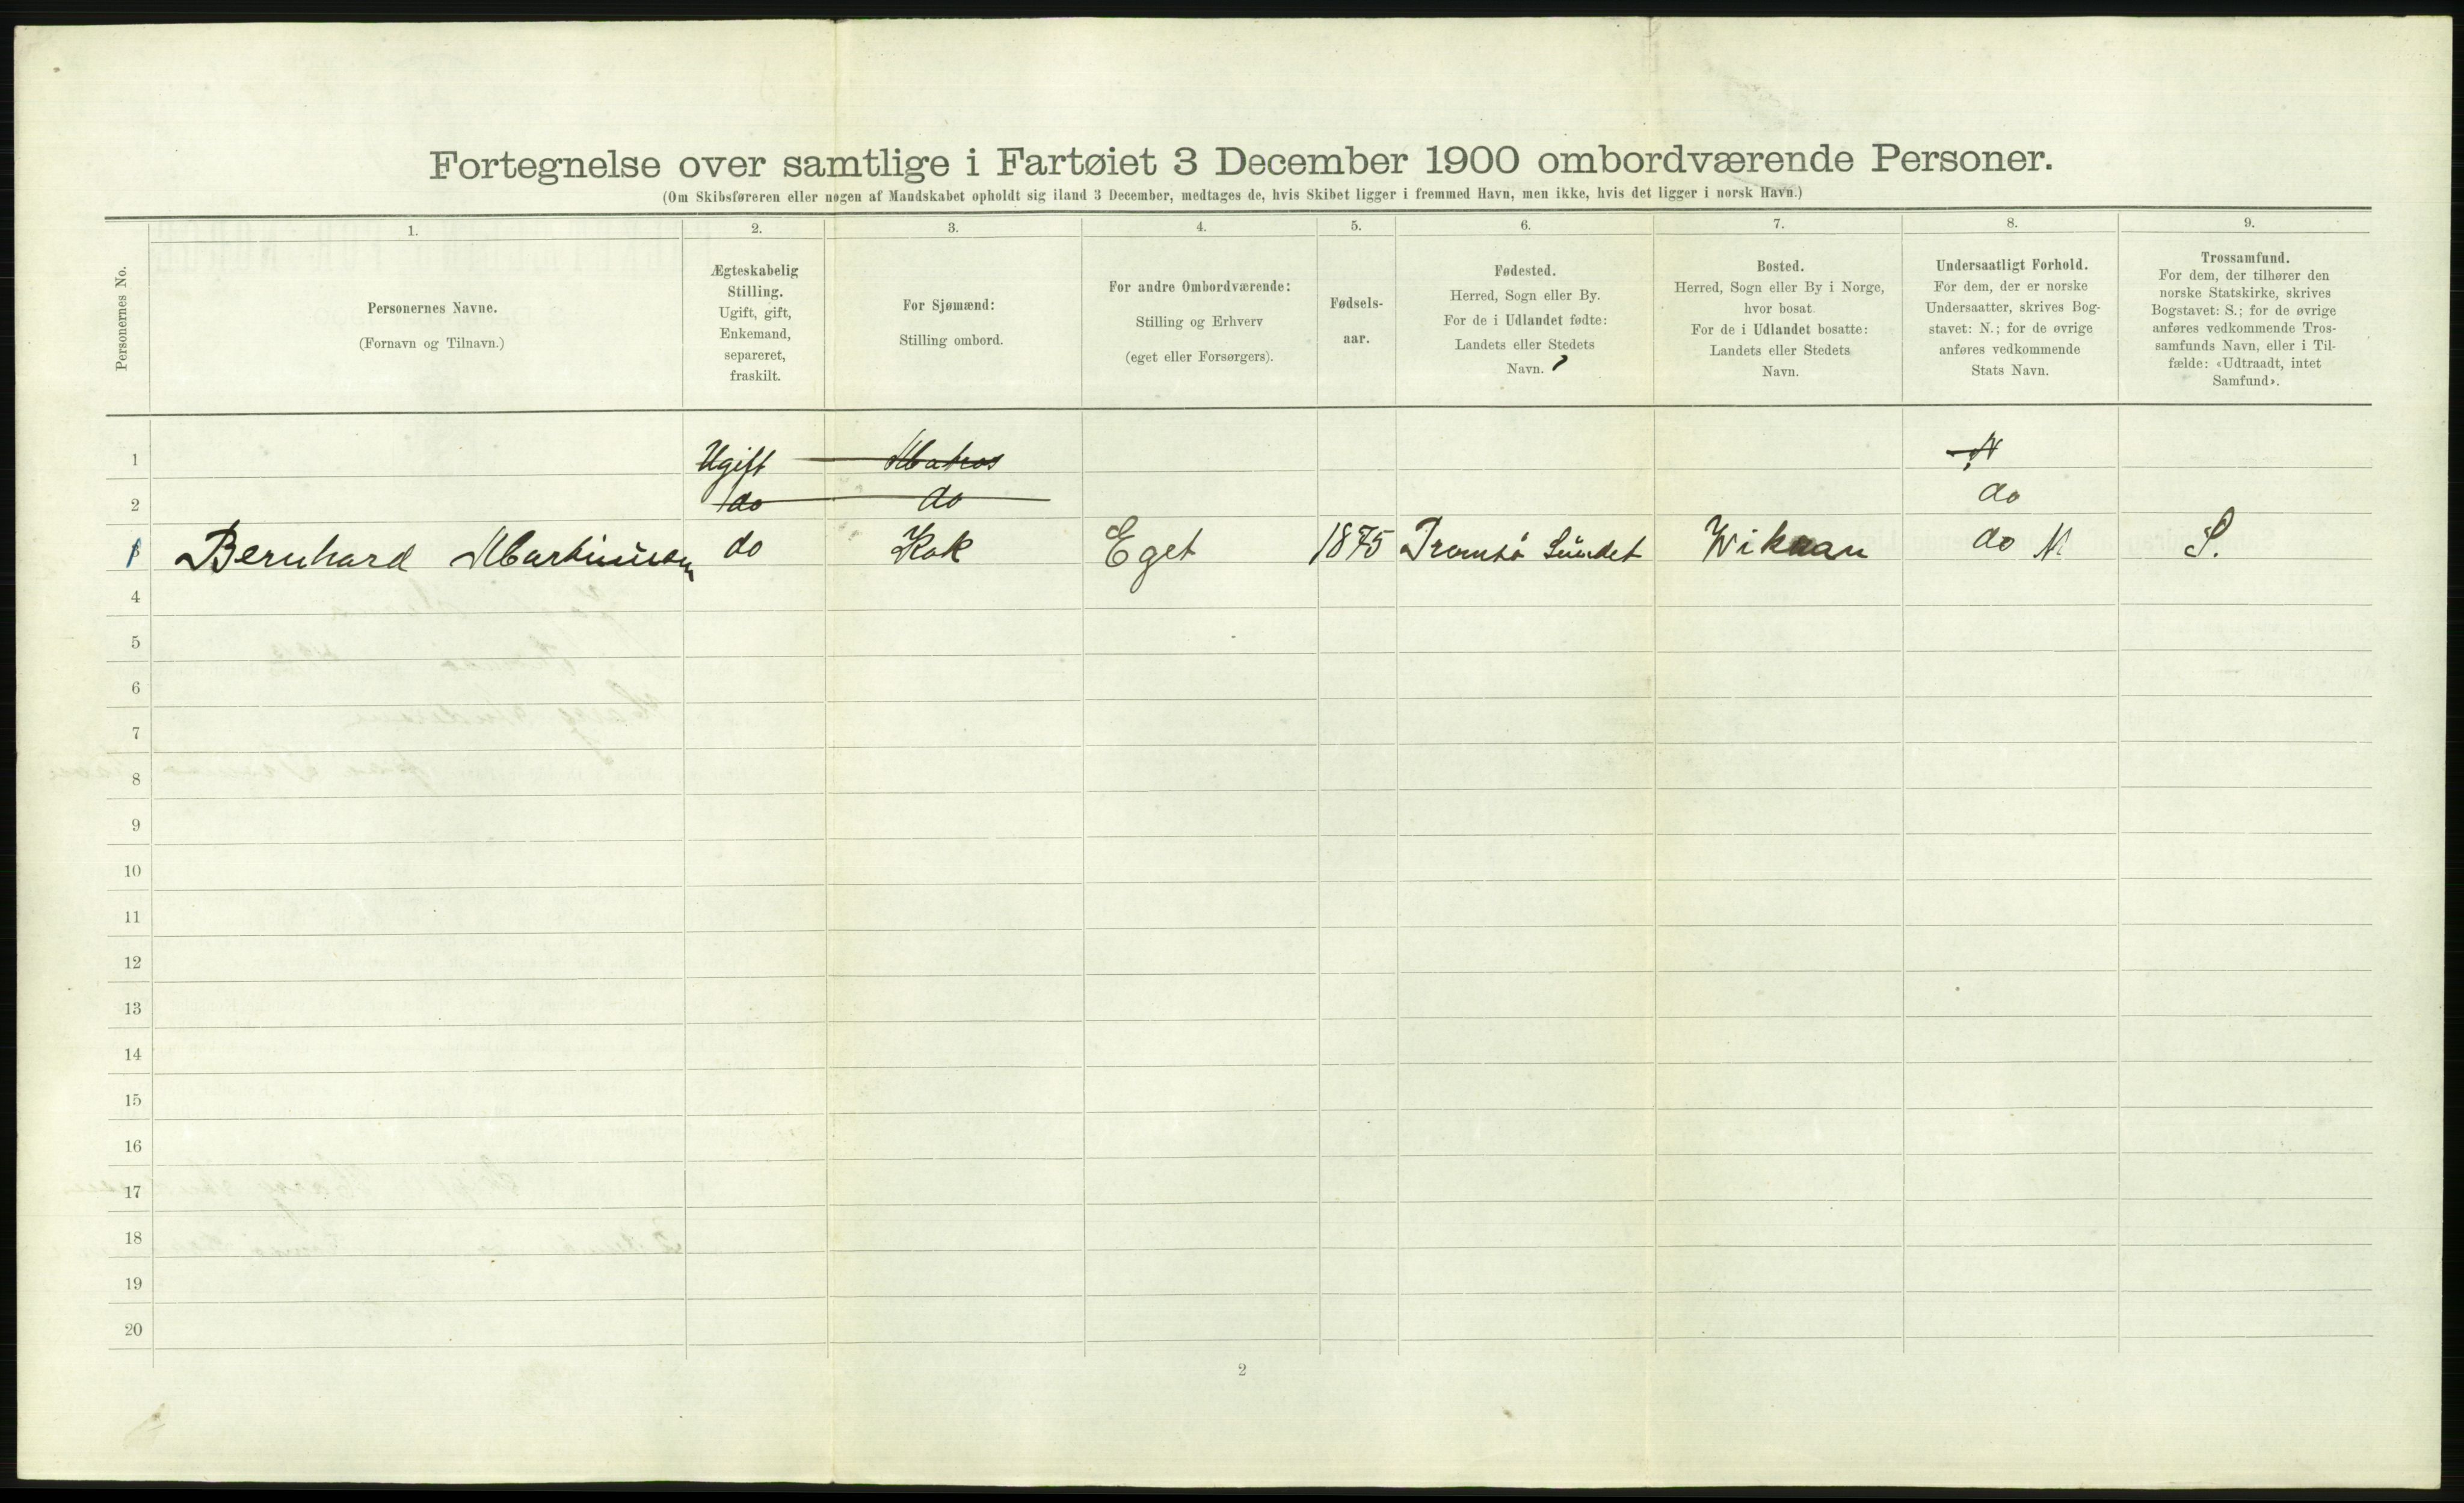 Fortegnelse over samtlige i Fartøiet 3 December 1900 ombordværende Personer.
(Om Skibsføreren eller nogen af Mandskabet opholdt sig iland 3 December, medtages de, hvis Skibet ligger i fremmed Havn, men ikke, hvis det ligger i norsk Havn.)
Personernes No.
1.
Personernes Navne.
(Fornavn og Tilnavn.)
2.
Ægteskabelig
Stilling.
Ugift, gift,
Enkemand,
separeret,
fraskilt.
3.
For Sjømænd:
Stilling ombord.
4.
For andre Ombordværende:
Stilling og Erhverv
(eget eller Forsørgers).
5.
Fødsels-
aar.
6.
Fødested.
Herred, Sogn eller By.
For de i Udlandet fødte:
Landets eller Stedets
Navn.
7.
Bosted.
Herred, Sogn eller By i Norge,
hvor bosat.
For de i Udlandet bosatte:
Landets eller Stedets
Navn.
8.
Undersaatligt Forhold.
For dem, der er norske
Undersaatter, skrives Bog-
stavet: N.; for de øvrige
anføres vedkommende
Stats Navn.
9.
Trossamfund.
For dem, der tilhører den
norske Statskirke, skrives
Bogstavet: S.; for de øvrige
anføres vedkommende Tros-
samfunds Navn, eller i Til-
fælde: «Udtraadt, intet
Samfund».
1 Ugift Matros N
2 do do do
1 Bernhard Martinusen do Kok Eget 1875 Tromsø Sundet Wikran do N. S.
4
5
6
7
8
9
10
11
12
13
14
15
16
17
18
19
20
2